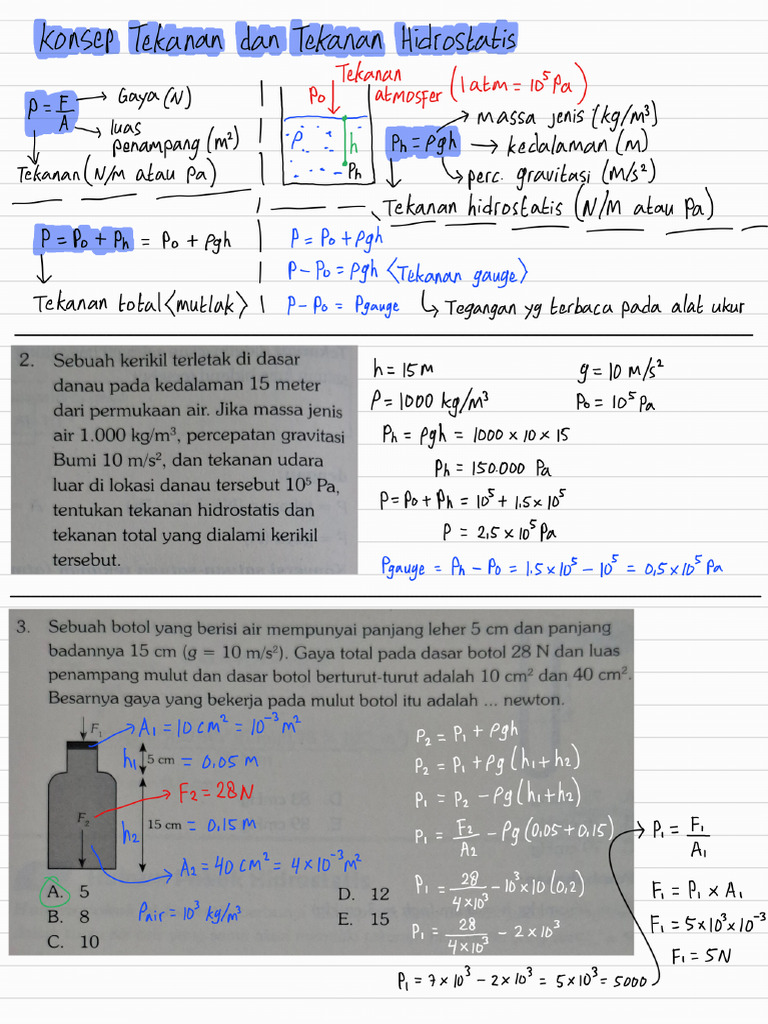 Konsep Tekanan dan Tekanan Hidrostatis
P = F/A → Gaya (N)
→ luas penampang (m²)
Tekanan (N/M atau Pa)
Tekanan atmosfer (1 atm = 10⁵ Pa)
P₀
ρ
h
Ph
Ph = ρgh → massa jenis (kg/m³)
→ kedalaman (m)
→ perc. gravitasi (m/s²)
Tekanan hidrostatis (N/M atau Pa)
P = P₀ + Ph = P₀ + ρgh
Tekanan total <mutlak>
P = P₀ + ρgh
P - P₀ = ρgh <Tekanan gauge>
P - P₀ = Pgauge ↳ Tegangan yg terbaca pada alat ukur
2. Sebuah kerikil terletak di dasar
danau pada kedalaman 15 meter
dari permukaan air. Jika massa jenis
air 1.000 kg/m³, percepatan gravitasi
Bumi 10 m/s², dan tekanan udara
luar di lokasi danau tersebut 10⁵ Pa,
tentukan tekanan hidrostatis dan
tekanan total yang dialami kerikil
tersebut.
h = 15 M g = 10 M/s²
ρ = 1000 kg/m³ P₀ = 10⁵ Pa
Ph = ρgh = 1000 × 10 × 15
Ph = 150.000 Pa
P = P₀ + Ph = 10⁵ + 1,5 × 10⁵
P = 2,5 × 10⁵ Pa
Pgauge = Ph - P₀ = 1.5 × 10⁵ - 10⁵ = 0,5 × 10⁵ Pa
3. Sebuah botol yang berisi air mempunyai panjang leher 5 cm dan panjang
badannya 15 cm (g = 10 m/s²). Gaya total pada dasar botol 28 N dan luas
penampang mulut dan dasar botol berturut-turut adalah 10 cm² dan 40 cm².
Besarnya gaya yang bekerja pada mulut botol itu adalah ... newton.
F₁ → A₁ = 10 cm² = 10⁻³ m²
h₁ 5 cm = 0,05 m
F₂ → F₂ = 28 N
h₂ 15 cm = 0,15 m
A₂ = 40 cm² = 4 × 10⁻³ m²
ρair = 10³ kg/m³
A. 5
B. 8
C. 10
D. 12
E. 15
P₂ = P₁ + ρgh
P₂ = P₁ + ρg (h₁ + h₂)
P₁ = P₂ - ρg (h₁ + h₂)
P₁ = F₂/A₂ - ρg (0,05 + 0,15)
P₁ = 28/4×10³ - 10³ × 10 (0,2)
P₁ = 28/4×10³ - 2 × 10³
P₁ = 7 × 10³ - 2 × 10³ = 5 × 10³ = 5000
→ P₁ = F₁/A₁
F₁ = P₁ × A₁
F₁ = 5 × 10³ × 10⁻³
F₁ = 5 N